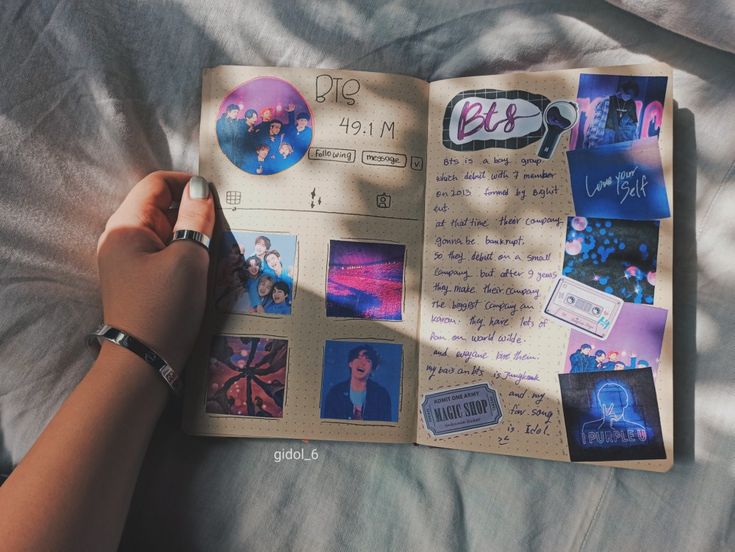 BTS
49.1 M
following
message
v
BtS
Bts is a boy group
which debut with 7 member
on 2013 formed by Bighit
ent.
at that time their company
gonna be bankrupt.
So they debut on a small
company but after 9 years
they make their company
the biggest company on
korean. they have lots of
fan on world wide.
and everyone love them.
my bias on bts is Jungkook
and my
fav song
is Idol.
Love your Self
I PURPLE U
ADMIT ONE ARMY
MAGIC SHOP
gidol_6